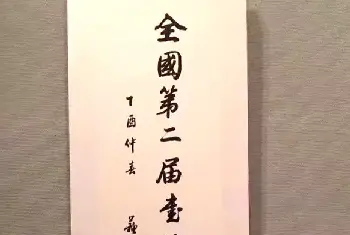 全國第二届書
丁酉仲春